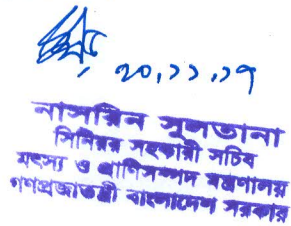 ২০.১১.১৭
নাসরিন সুলতানা
সিনিয়র সহকারী সচিব
মৎস্য ও প্রাণিসম্পদ মন্ত্রণালয়
গণপ্রজাতন্ত্রী বাংলাদেশ সরকার